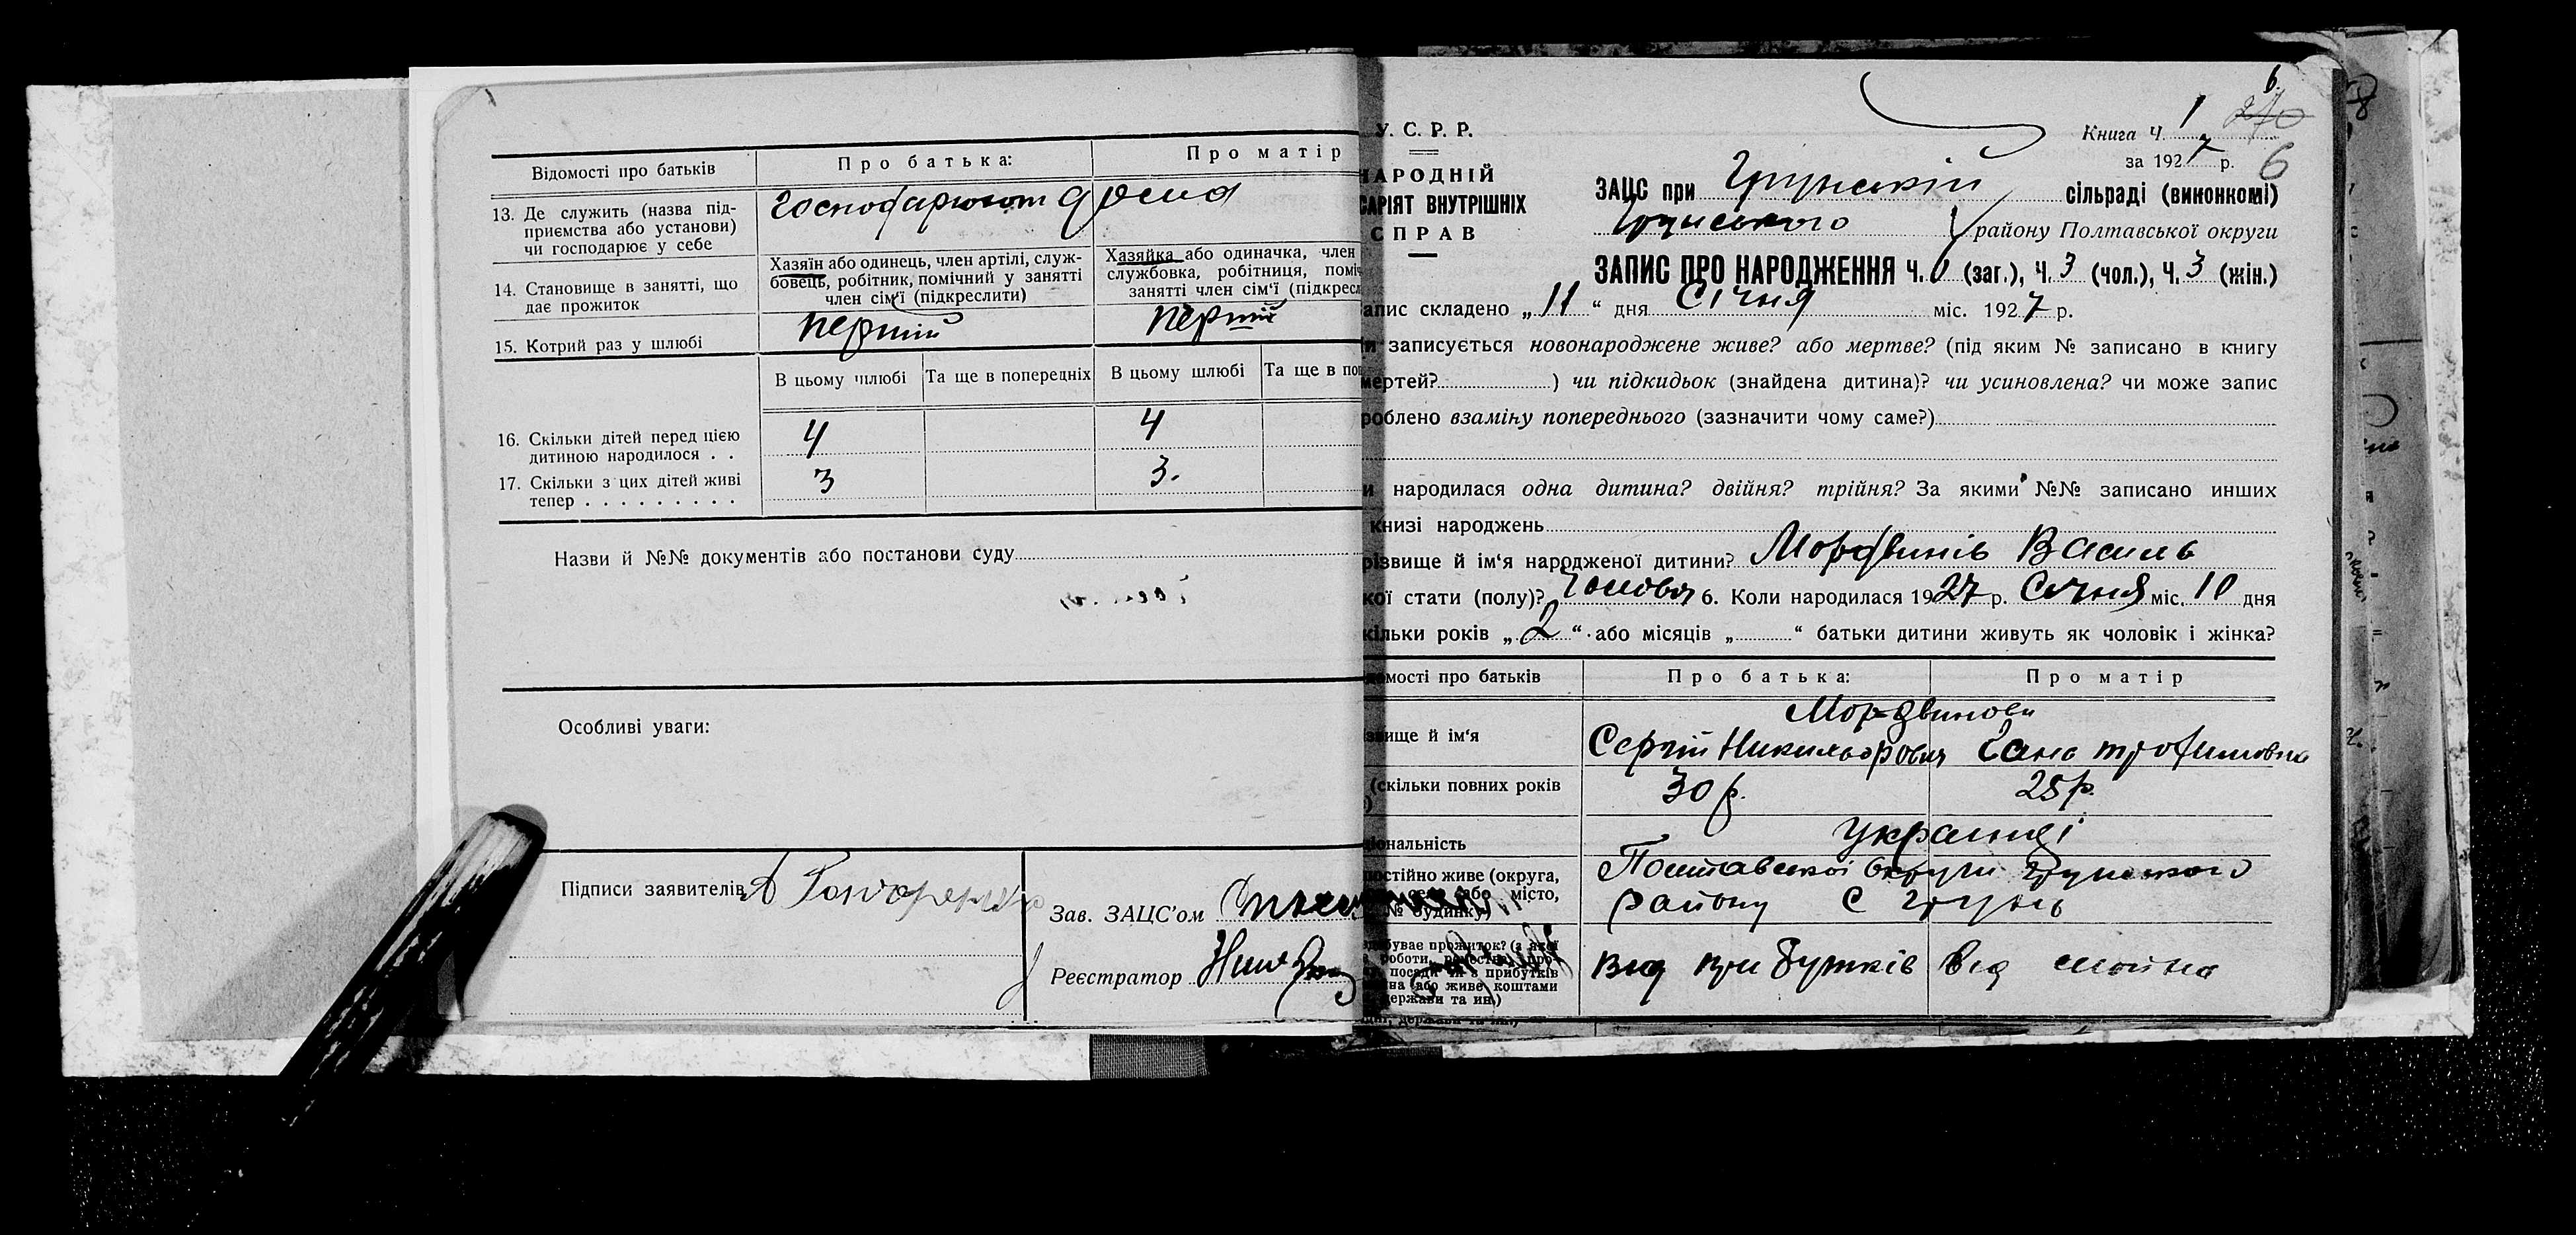 Відомості про батьків
Про батька:
Про матір
13. Де служить (назва під-
приємства або установи)
чи господарює у себе
господарюют дома
14. Становище в занятті, що
дає прожиток
Хазяїн або одинець, член артілі, служ-
бовець, робітник, помічний у занятті
член сім'ї (підкреслити)
Хазяйка або одиначка, член
службовка, робітниця, поміч
занятті член сім'ї (підкресл
15. Котрий раз у шлюбі
перший
перший
В цьому шлюбі
Та ще в попередніх
В цьому шлюбі
Та ще в по
16. Скільки дітей перед цією
дитиною народилося . .
4
4
17. Скільки з цих дітей живі
тепер . . . . . . . . .
3
3.
Назви й №№ документів або постанови суду
Особливі уваги:
Підписи заявителів
А Гончаренко
Зав. ЗАЦС'ом
Реєстратор
6
270
У. С. Р. Р.
НАРОДНІЙ
САРІЯТ ВНУТРІШНІХ
СПРАВ
Книга Ч. 1
за 1927 р. 6
ЗАЦС при Грунській сільраді (виконкомі)
Грунського району Полтавської округи
ЗАПИС ПРО НАРОДЖЕННЯ Ч. 6 (заг.), Ч. 3 (чол.), Ч. 3 (жін.)
апис складено „ 11 “ дня Січня міс. 1927 р.
и записується новонароджене живе? або мертве? (під яким № записано в книгу
мертей? ) чи підкидьок (знайдена дитина)? чи усиновлена? чи може запис
роблено взаміну попереднього (зазначити чому саме?)
и народилася одна дитина? двійня? трійня? За якими №№ записано инших
книзі народжень
різвище й ім'я народженої дитини? Мордвинів Василь
кої стати (полу)? Чоловіч 6. Коли народилася 1927 р. Січня міс. 10 дня
кільки років „ 2 “ або місяців „ “ батьки дитини живуть як чоловік і жінка?
домості про батьків
Про батька:
Про матір
звище й ім'я
Мордвинови
Сергій Никифорович
Ганна Трофимовна
(скільки повних років
30 р.
25 р.
ціональність
Українці
постійно живе (округа,
село або місто,
№ будинку)
Полтавської округи Грунського
району С Грунь
добуває прожиток? (з якої
роботи, ремества, про-
посади чи з прибутків
на або живе коштами
держави та ин.)
Від прибутків
Від майна